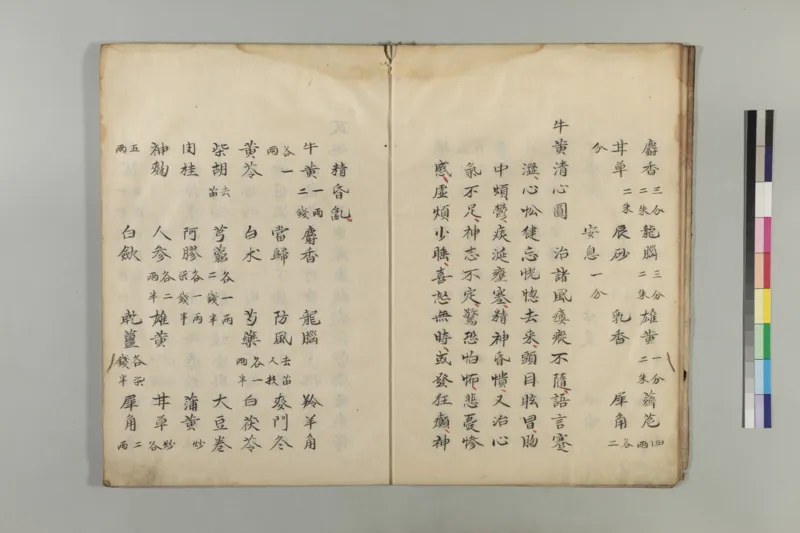 麝香三分二朱 龍腦三分二朱 雄黄一分二朱 薺苨四两
甘草二朱 辰砂 乳香 犀角各二
分 安息一分
牛黄清心圓 治諸風痿癈不隨語言蹇
澁心忪健忘恍惚去来頭目眩冒胸
中煩鬱痰涎壅塞精神昏憒又治心
氣不足神志不定驚恐怕怖悲憂惨
慼虚煩少睡喜怒無時或發狂癲神
精昏亂
牛黄一两二錢 麝香 龍腦 羚羊角
各一两 當歸 防風去笛人枝 麥門冬
黄芩 白朮 芍藥各一两半 白茯苓
柴胡去笛 芎藭各一两二錢半 大豆卷
肉桂 阿膠各一两柒錢半 蒲黄炒
神麴 人参各二两半 雄黄 甘草炒各
五两 白歛 乾薑各柒錢半 犀角二两